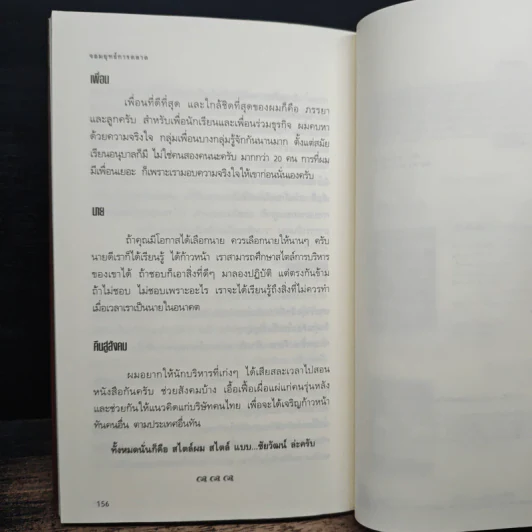 จอมยุทธ์การตลาด
เพื่อน
เพื่อนที่ดีที่สุด และใกล้ชิดที่สุดของผมก็คือ ภรรยา
และลูกครับ สำหรับเพื่อนักเรียนและเพื่อนร่วมธุรกิจ ผมคบหา
ด้วยความจริงใจ กลุ่มเพื่อนบางกลุ่มรู้จักกันนานมาก ตั้งแต่สมัย
เรียนอนุบาลก็มี ไม่ใช่คนสองคนนะครับ มากกว่า 20 คน การที่ผม
มีเพื่อนเยอะ ก็เพราะเรามอบความจริงใจให้เขาก่อนนั่นเองครับ
นาย
ถ้าคุณมีโอกาสได้เลือกนาย ควรเลือกนายให้นานๆ ครับ
นายดีเราก็ได้เรียนรู้ ได้ก้าวหน้า เราสามารถศึกษาสไตล์การบริหาร
ของเขาได้ ถ้าชอบก็เอาสิ่งที่ดีๆ มาลองปฏิบัติ แต่ตรงกันข้าม
ถ้าไม่ชอบ ไม่ชอบเพราะอะไร เราจะได้เรียนรู้ถึงสิ่งที่ไม่ควรทำ
เมื่อเวลาเราเป็นนายในอนาคต
คืนสู่สังคม
ผมอยากให้นักบริหารที่เก่งๆ ได้เสียสละเวลาไปสอน
หนังสือกันครับ ช่วยสังคมบ้าง เอื้อเฟื้อเผื่อแผ่แก่คนรุ่นหลัง
และช่วยกันให้แนวคิดแก่บริษัทคนไทย เพื่อจะได้เจริญก้าวหน้า
ทันคนอื่น ตามประเทศอื่นทัน
ทั้งหมดนั่นก็คือ สไตล์ผม สไตล์ แบบ...ชัยวัฒน์ ล่ะครับ
156